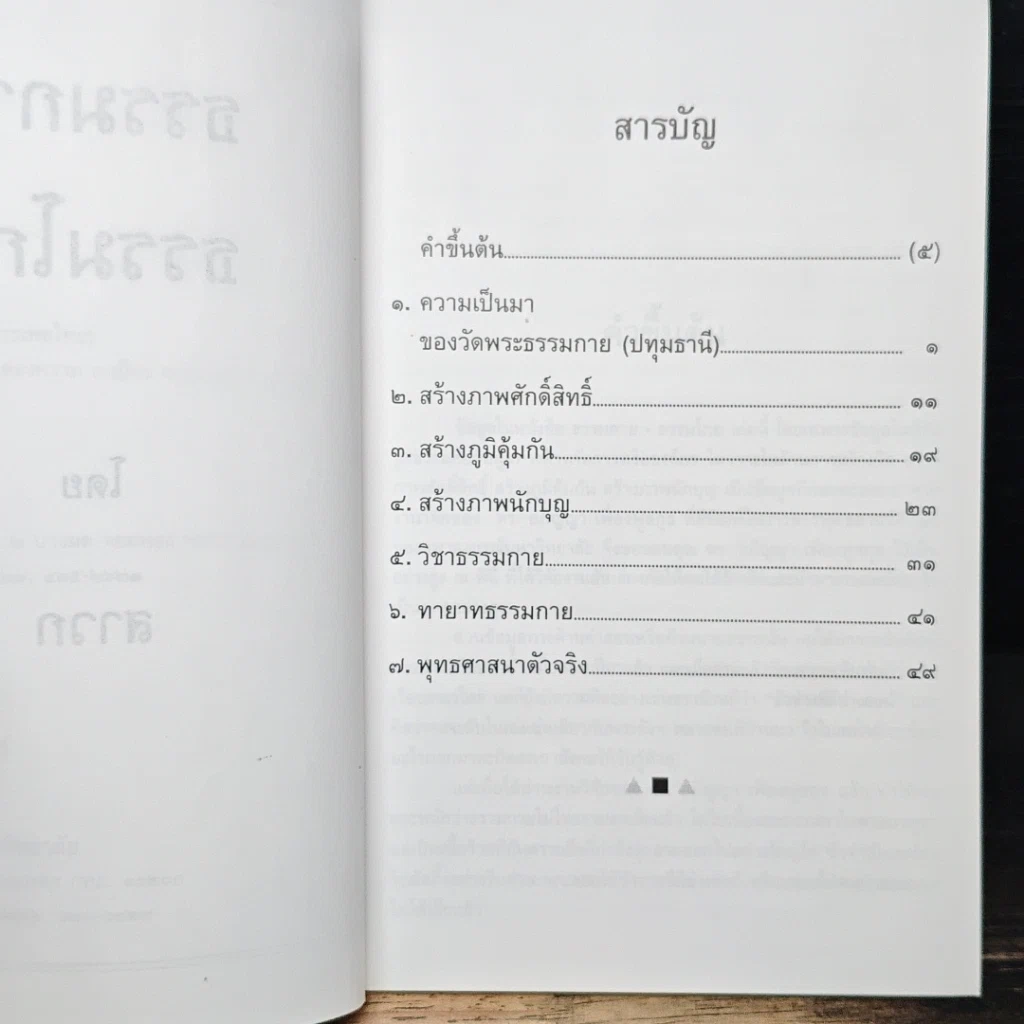 สารบัญ
คำขึ้นต้น (๕)
๑. ความเป็นมา
ของวัดพระธรรมกาย (ปทุมธานี) ๑
๒. สร้างภาพศักดิ์สิทธิ์ ๑๑
๓. สร้างภูมิคุ้มกัน ๑๙
๔. สร้างภาพนักบุญ ๒๓
๕. วิชาธรรมกาย ๓๑
๖. ทายาทธรรมกาย ๔๑
๗. พุทธศาสนาตัวจริง ๔๙